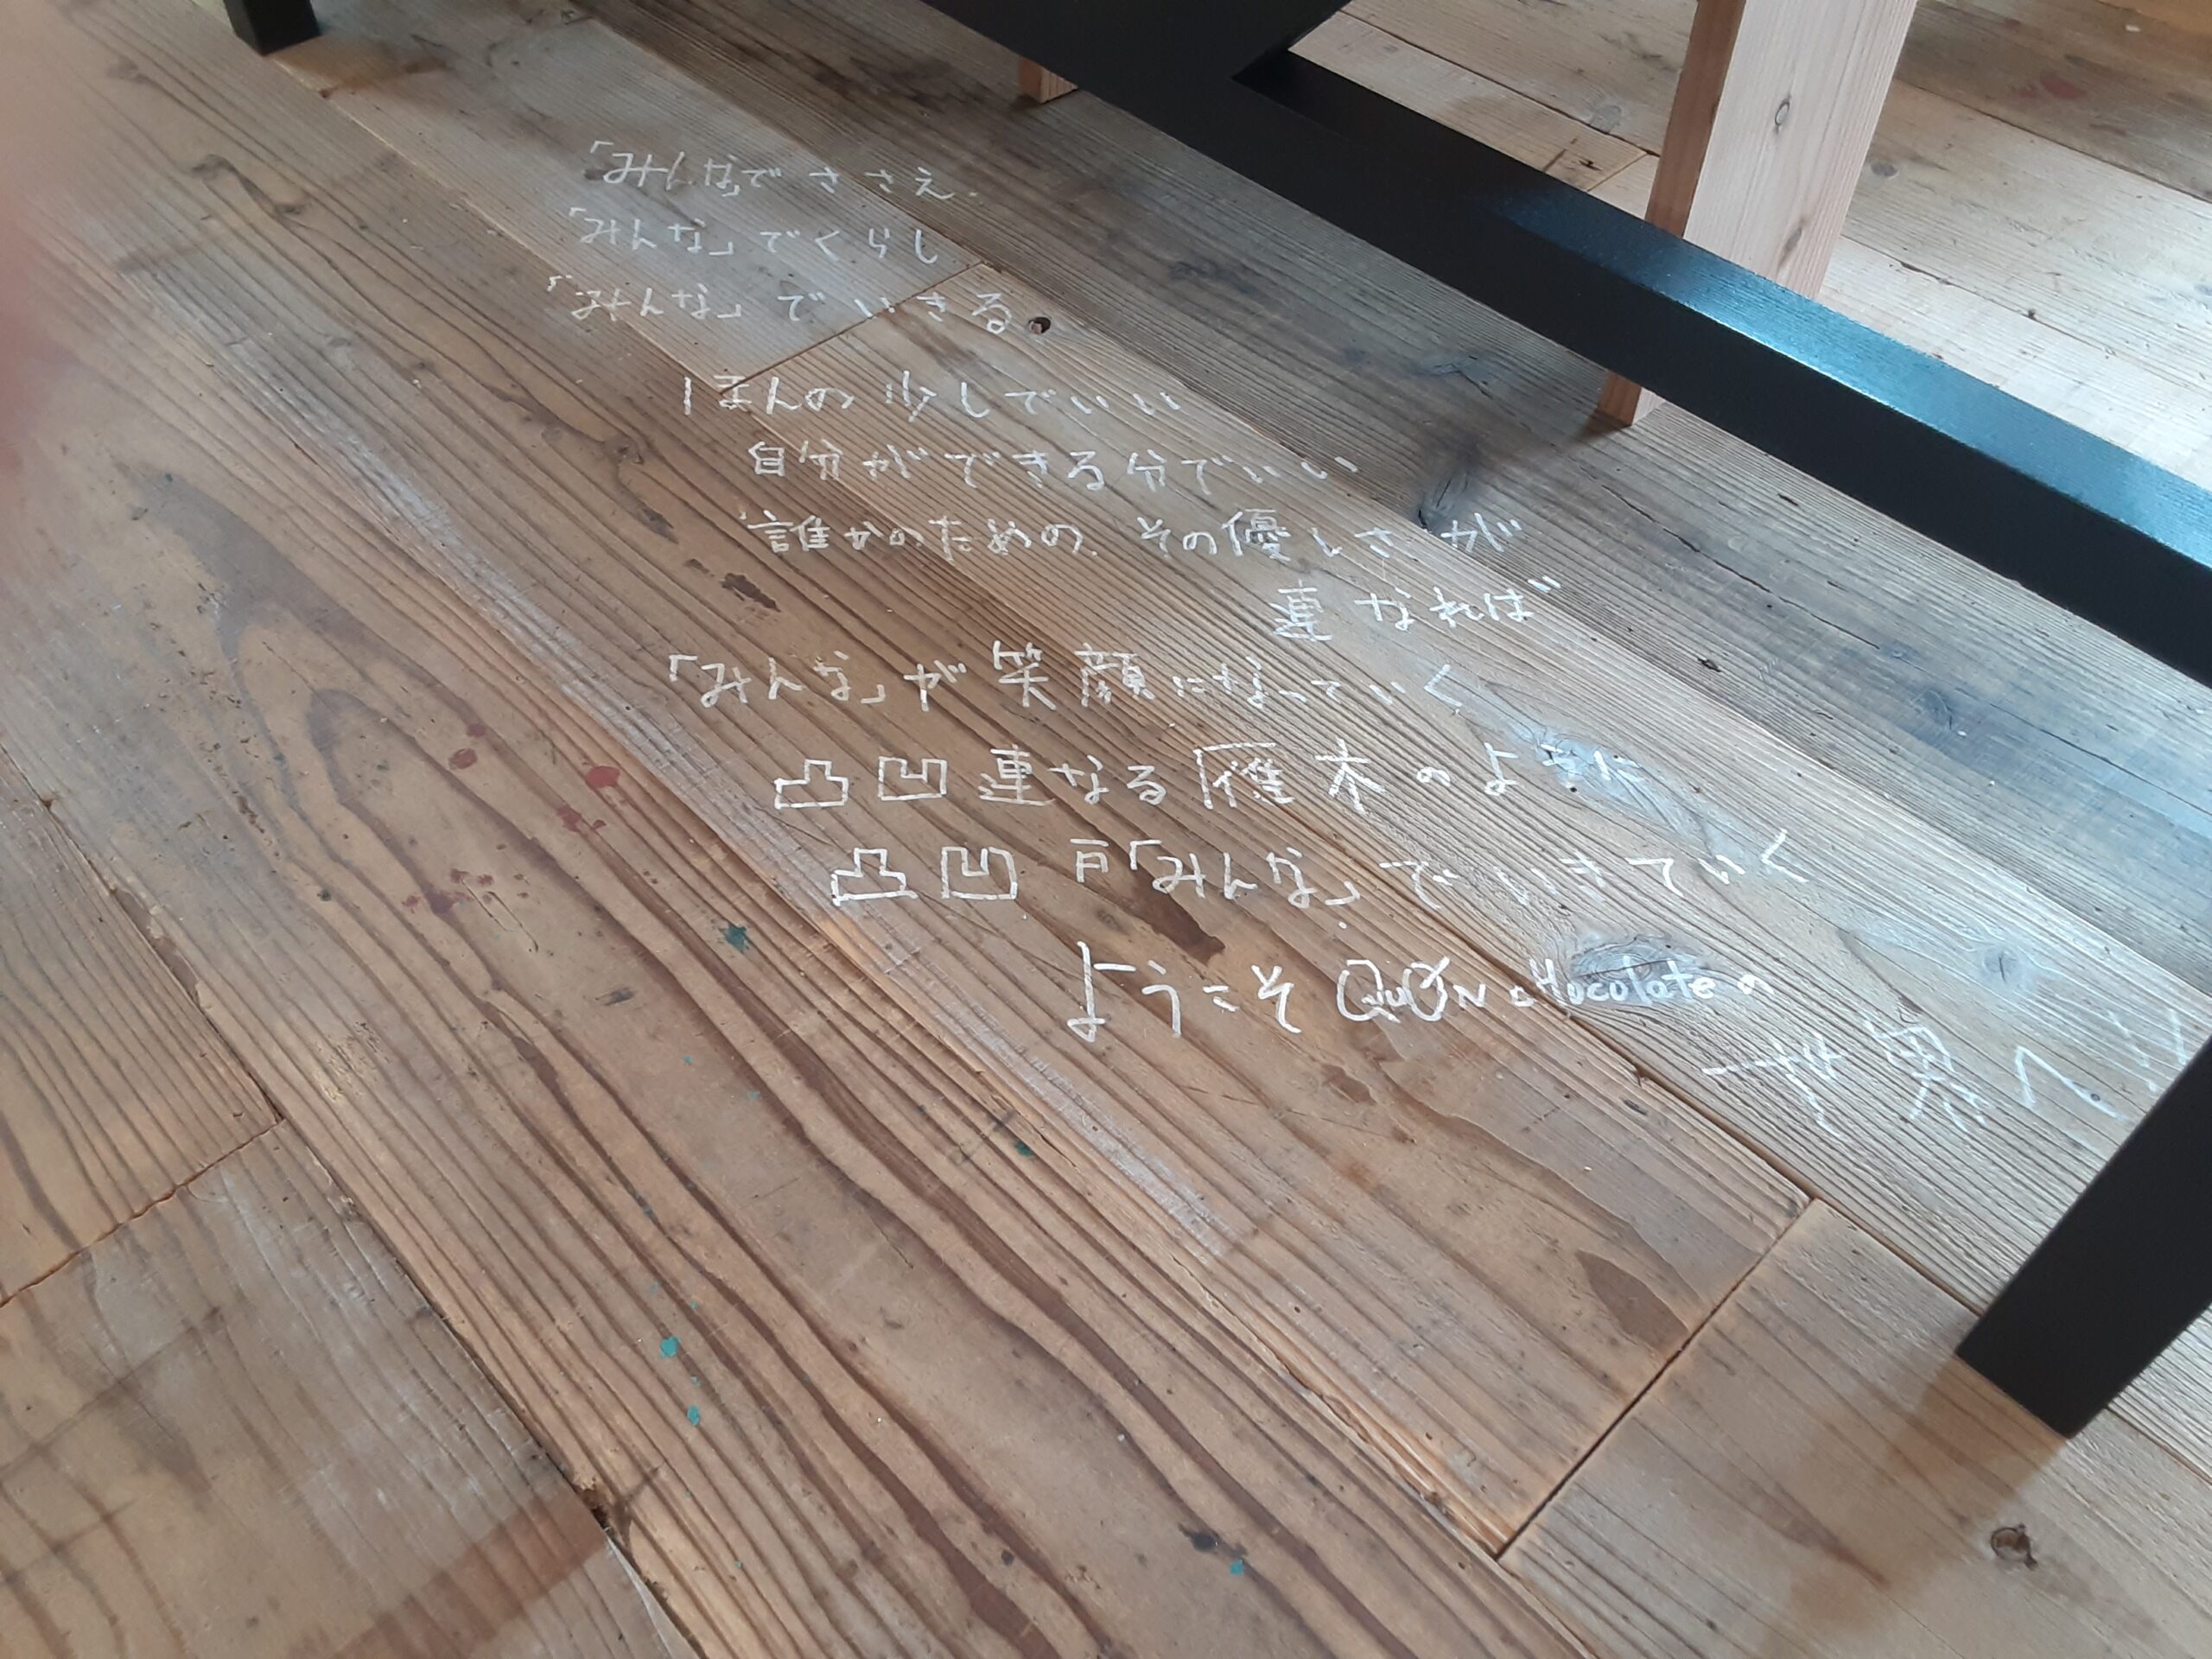 「みんなでささえ
「みんな」でくらし
「みんな」でいきる
ほんの少しでいい
自分ができる分でいい
誰かのための その優しさが
連なれば
「みんな」が笑顔になっていく
凸凹連なる雁木のように
凸凹「みんな」でいきていく
ようこそ QUON CHocolateの
世界へ!!